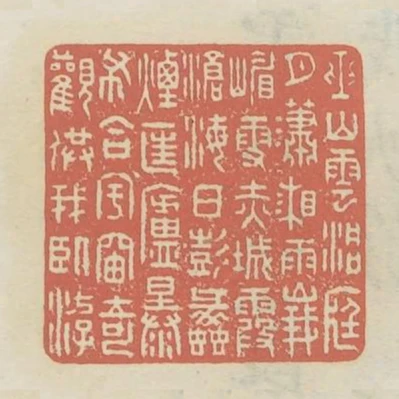 巫山雲洞庭
月瀟湘雨峩
嵋雪赤城霞
滄海日彭蠡
煙匡廬暴
布合宇宙奇
觀供我臥游